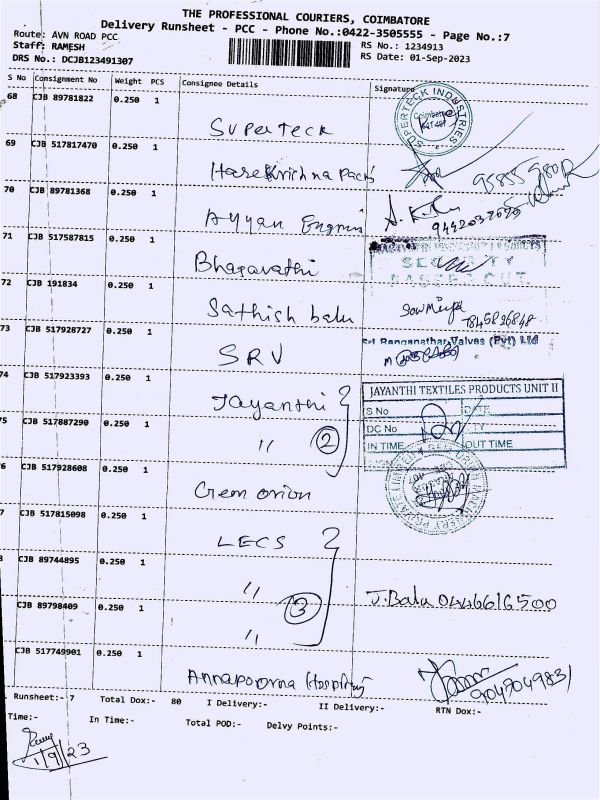 THE PROFESSIONAL COURIERS, COIMBATORE
Delivery Runsheet - PCC - Phone No.:0422-3505555 - Page No.:7
Route: AVN ROAD PCC
RS No.: 1234913
Staff: RAMESH
RS Date: 01-Sep-2023
DRS No.: DCJB123491307
S No Consignment No Weight PCS Consignee Details Signature
68 CJB 89781822 0.250 1
SUPERTECK INDUSTRIES
Coimbatore
Superteck
69 CJB 517817470 0.250 1
Harekrishna Packs
70 CJB 89781368 0.250 1
Ayyan
9442032629
71 CJB 517587815 0.250 1
Bhagavathi
SECURITY
PASSED OUT
72 CJB 191834 0.250 1
Sathish balu
Sowmiya
7845826848
73 CJB 517928727 0.250 1
Sri Ranganathar Valves (Pvt) Ltd
SRV
74 CJB 517923393 0.250 1
Jayanthi
JAYANTHI TEXTILES PRODUCTS UNIT II
S No DATE
75 CJB 517887290 0.250 1
DC No
" 2
IN TIME OUT TIME
6 CJB 517928608 0.250 1
Crem onion
7 CJB 517815098 0.250 1
LECS
8 CJB 89744895 0.250 1
" 3
CJB 89798409 0.250 1
J. Balu 0446616500
"
CJB 517749901 0.250 1
Annapoorna Hospital
9047049831
Runsheet:- 7 Total Dox:- 80 I Delivery:- II Delivery:- RTN Dox:-
Time:- In Time:- Total POD:- Delvy Points:-
1/9/23